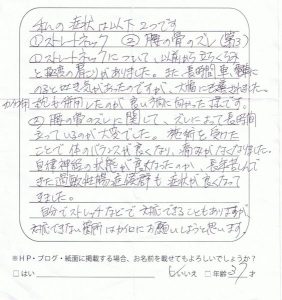 私の症状は以下2つです
①ストレートネック ②腰の骨のズレ(第3)
①ストレートネックについて、以前から立ちくらみ
と極度の肩こりがありました。また、長時間、車、電車に
のると吐き気があったのですが、大幅に改善されました。
も併用したのが良い方向に向かった様です。
②腰の骨のズレに関して、ズレによって長時間
立っているのが大変でした。施術を受けた
ことで体のバランスが良くなり、痛みがなくなりました。
自律神経の状態が良くなったのか、長年苦しんで
きた過敏性腸症候群も症状が良くなって
きました。
自分でストレッチなどで対応できることもありますが、
対応できない箇所は今後もお願いしようと思います。
※HP・ブログ・紙面に掲載する場合、お名前を載せてもよろしいでしょうか?
□はい いいえ □年齢 37 才